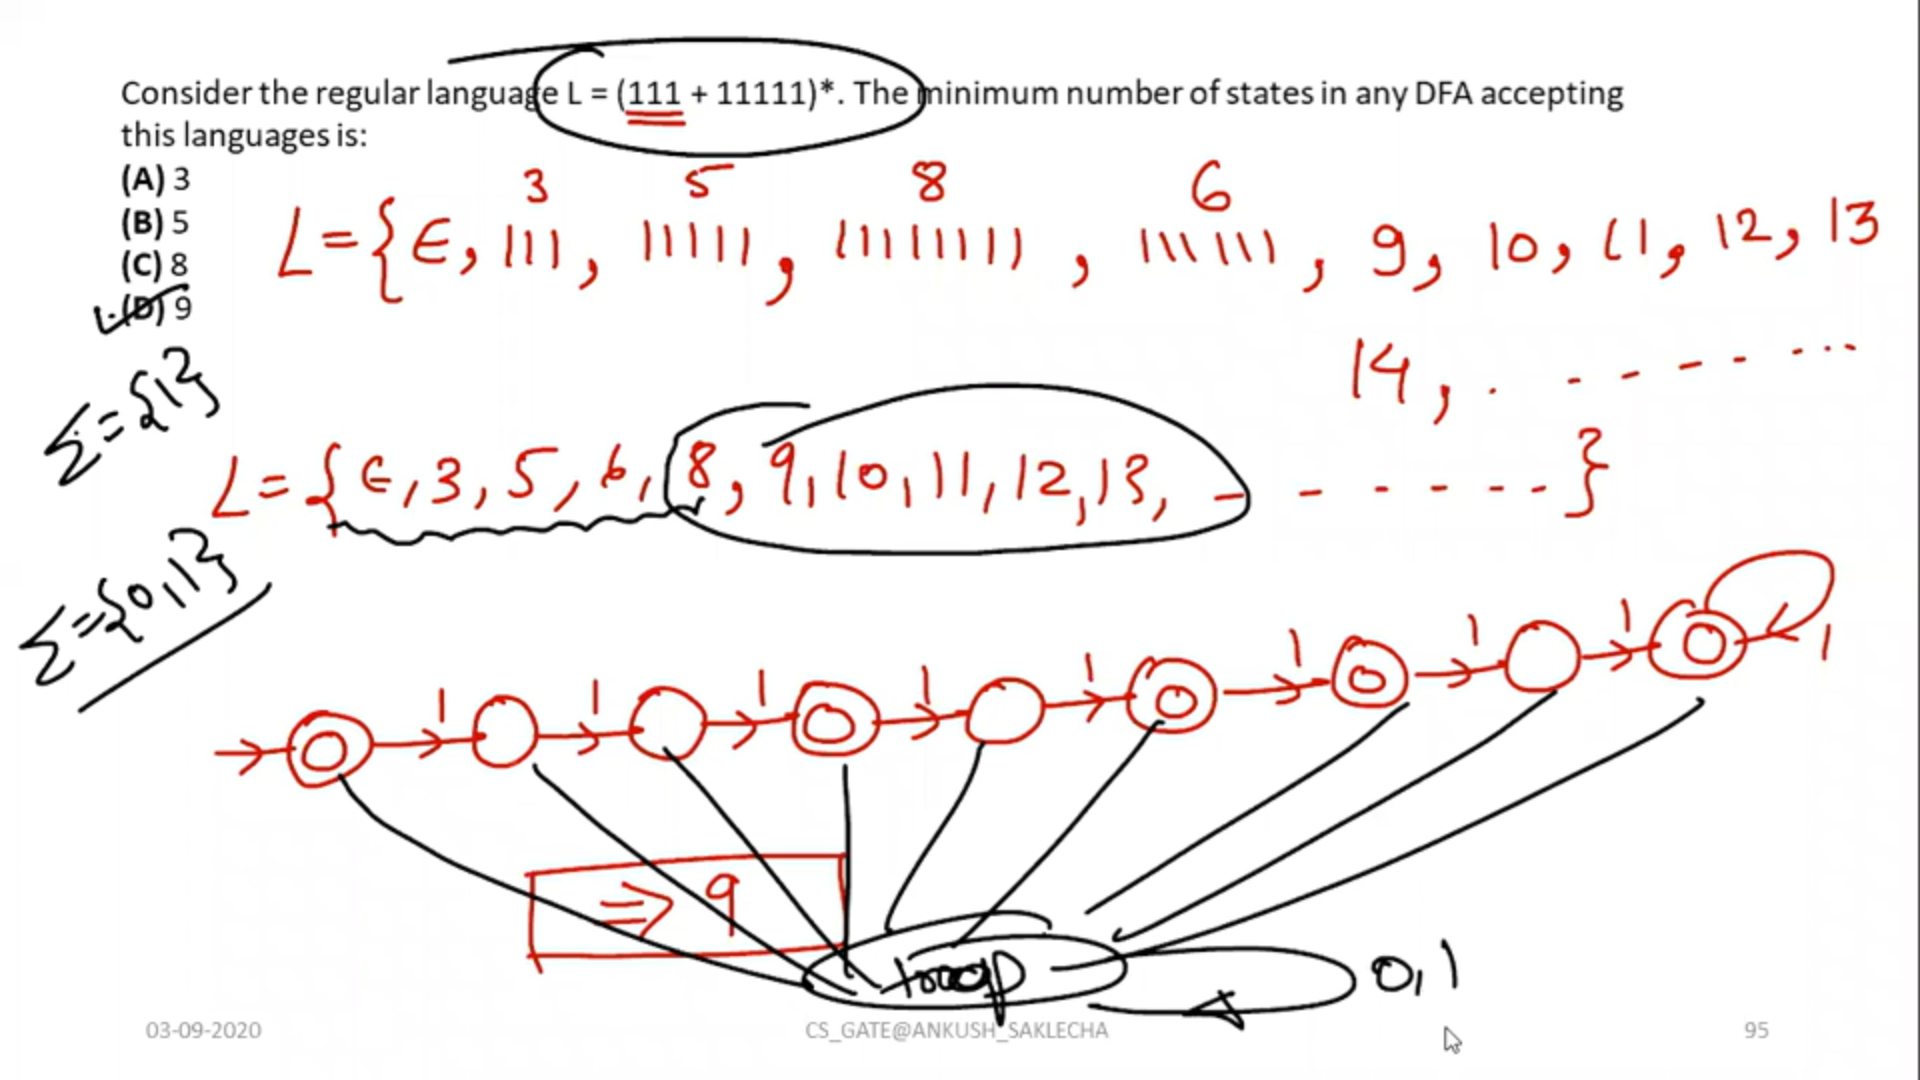 Consider the regular language L = (111 + 11111)*. The minimum number of states in any DFA accepting
this languages is:
(A) 3
(B) 5
(C) 8
(D) 9
3 5 8 6
L={ϵ, 111, 11111, 11111111, 111111, 9, 10, 11, 12, 13
14, . - - - - - ...
Σ={1}
L={ϵ, 3, 5, 6, 8, 9, 10, 11, 12, 13, - - - - - - -}
Σ={0,1}
1 1 1 1 1 1 1 1 1
⇒ 9
trap 0,1
03-09-2020 CS_GATE@ANKUSH_SAKLECHA 95